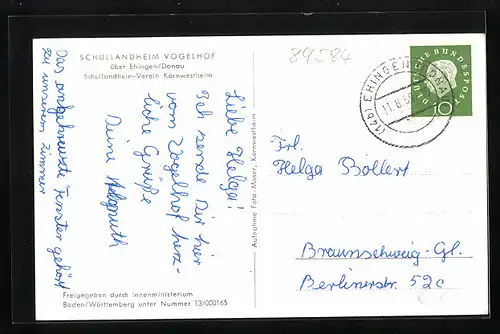 SCHULLANDHEIM VOGELHOF
über Ehingen/Donau
Schullandheim-Verein Kornwestheim
Liebe Helga!
Ich sende Dir hier
vom Vogelhof herz-
liche Grüße
Deine
Das angekreuzte Fenster gehört
zu unserem Zimmer
Freigegeben durch Innenministerium
Baden/Württemberg unter Nummer 13/000165
Aufnahme Foto-Moser, Kornwestheim
89584
(14b) EHINGEN (DONAU)
DEUTSCHE BUNDESPOST
10
Frl.
Helga Böllert
Braunschweig-Gl.
Berlinerstr. 52c